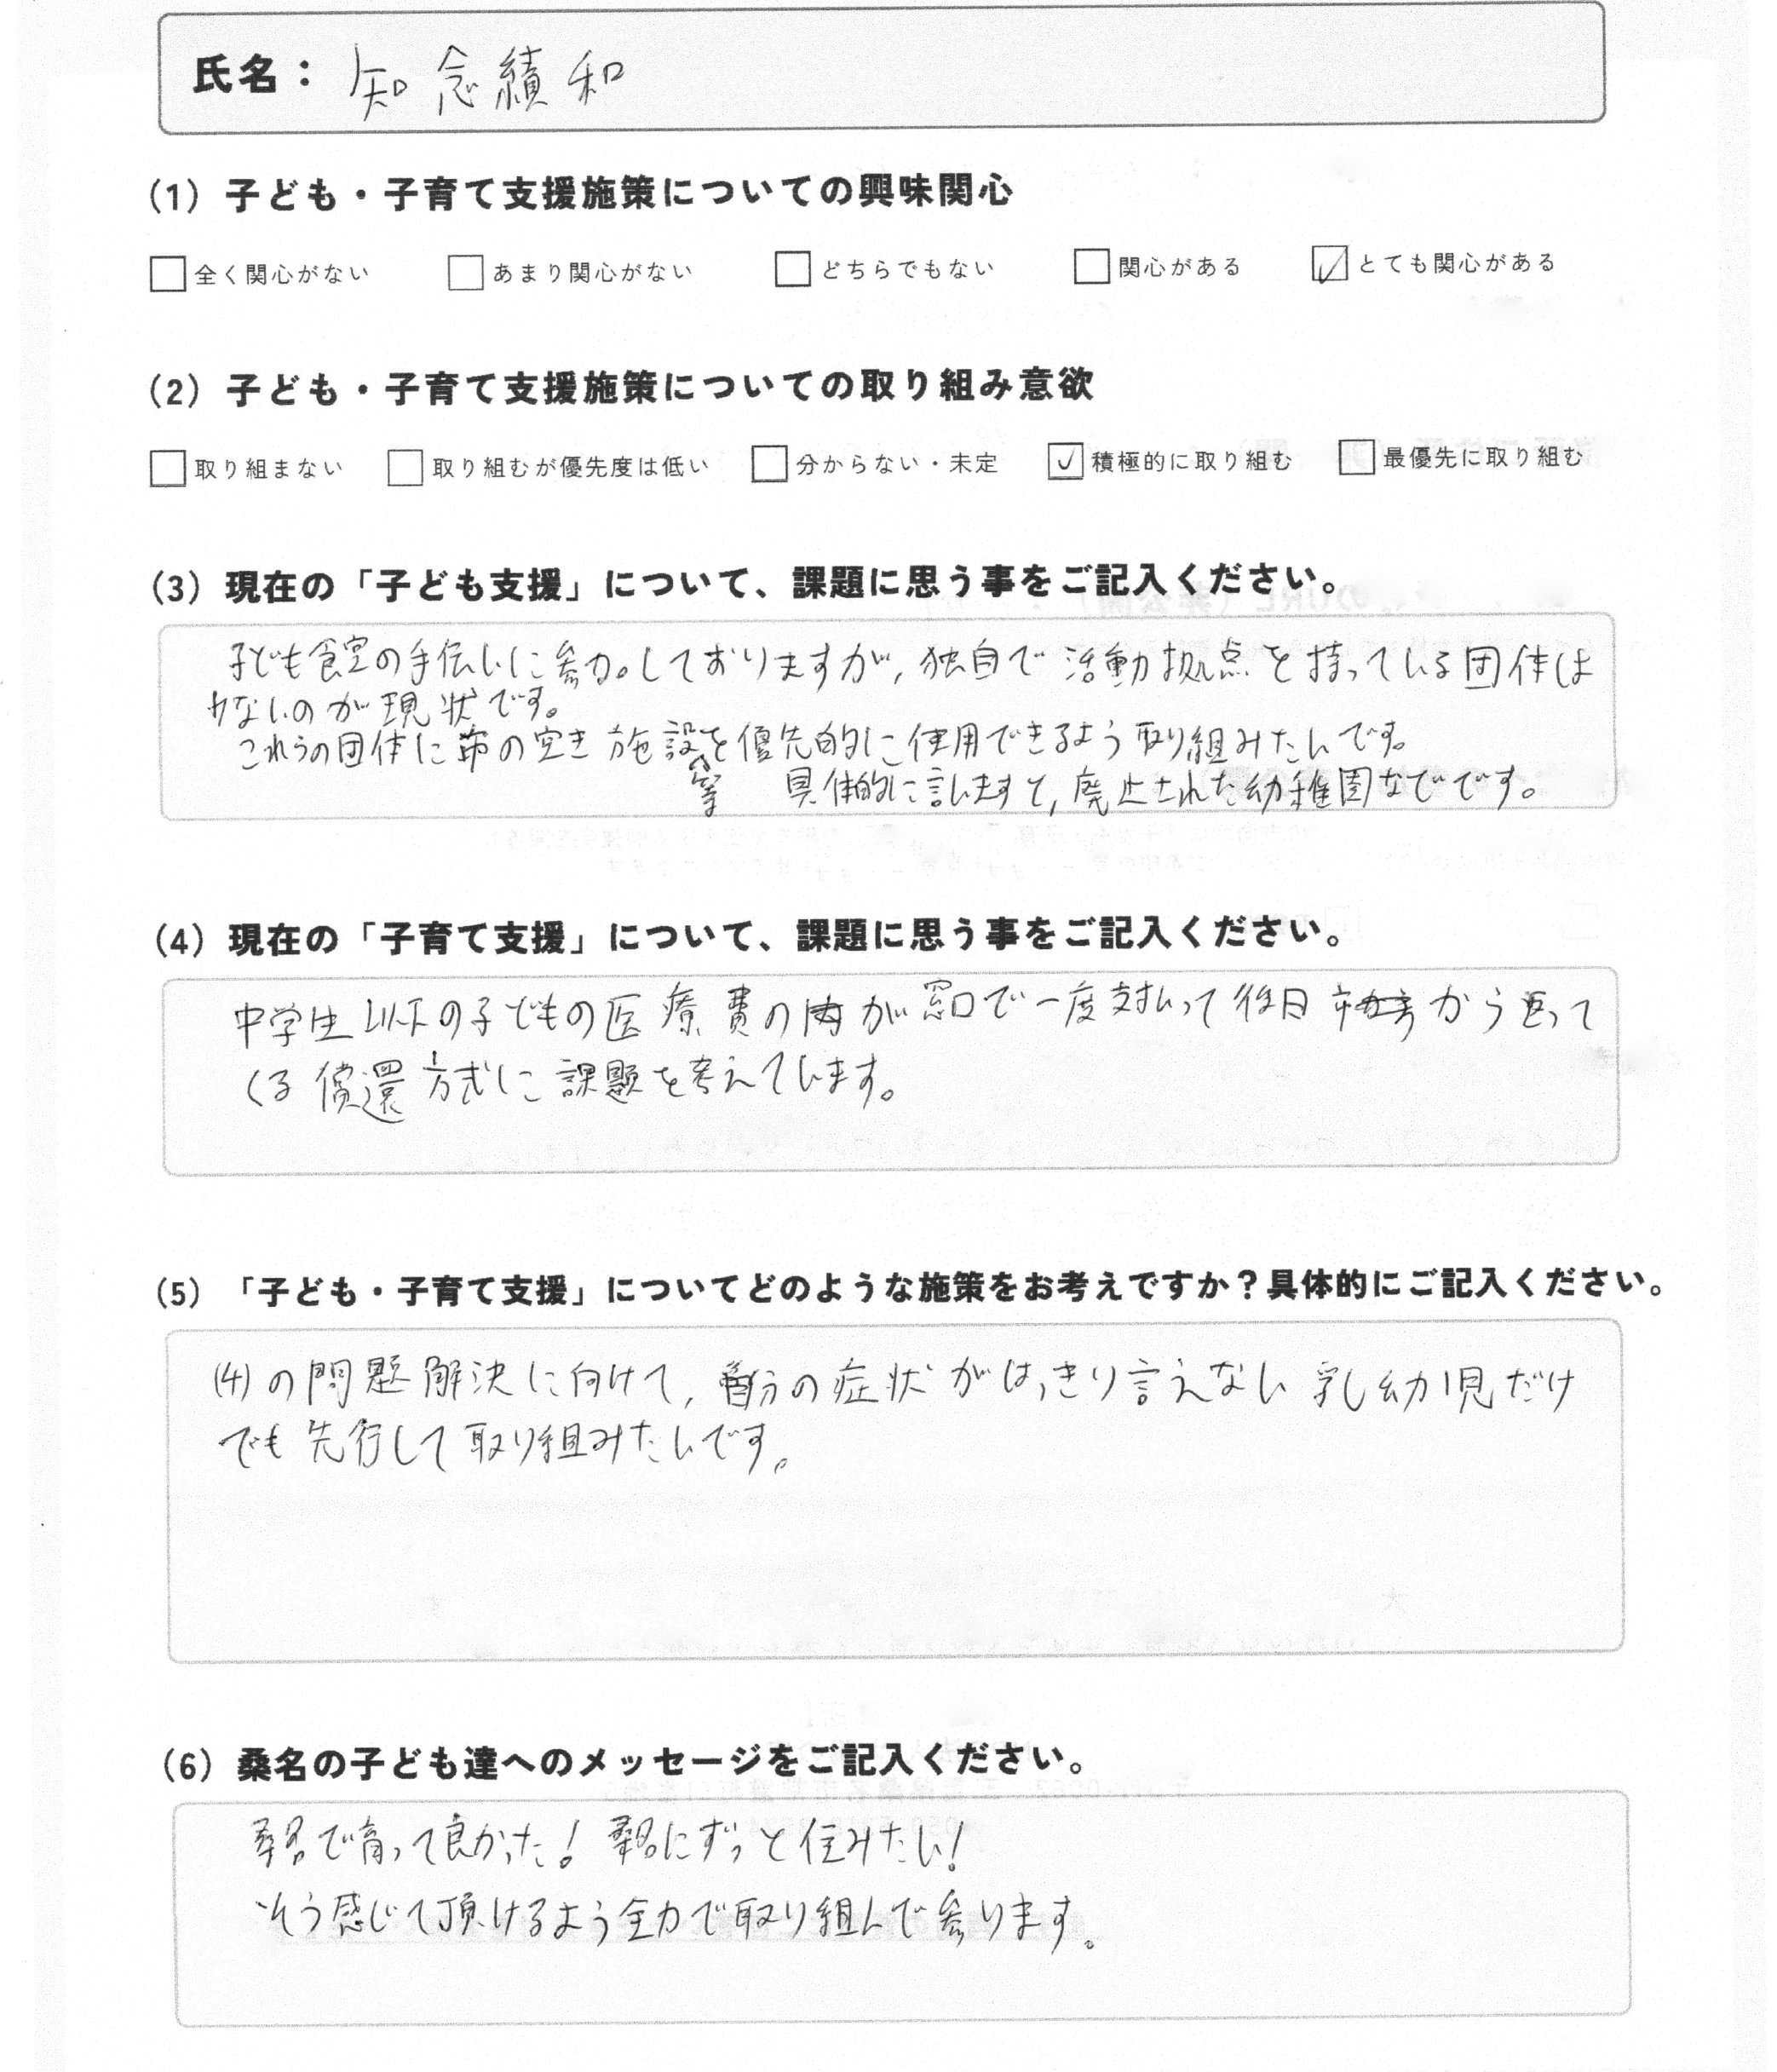 氏名： 知念績和
(1) 子ども・子育て支援施策についての興味関心
□全く関心がない □あまり関心がない □どちらでもない □関心がある ☑とても関心がある
(2) 子ども・子育て支援施策についての取り組み意欲
□取り組まない □取り組むが優先度は低い □分からない・未定 ☑積極的に取り組む □最優先に取り組む
(3) 現在の「子ども支援」について、課題に思う事をご記入ください。
子ども食堂の手伝いに参加しておりますが、独自で活動拠点を持っている団体は
少ないのが現状です。
これらの団体に市の空き施設等を優先的に使用できるよう取り組みたいです。
具体的に言いますと、廃止された幼稚園などです。
(4) 現在の「子育て支援」について、課題に思う事をご記入ください。
中学生以下の子どもの医療費の が窓口で一度支払って後日 から返って
くる償還方式に課題を考えています。
(5) 「子ども・子育て支援」についてどのような施策をお考えですか？具体的にご記入ください。
(4)の問題解決に向けて、自分の症状がはっきり言えない乳幼児だけ
でも先行して取り組みたいです。
(6) 桑名の子ども達へのメッセージをご記入ください。
桑名で育って良かった！桑名にずっと住みたい！
そう感じて頂けるよう全力で取り組んで参ります。